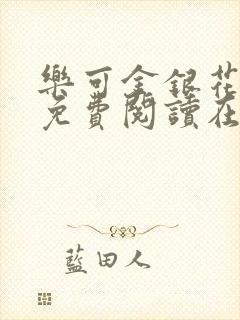 樂可金銀花
免費閱讀在
藍田人